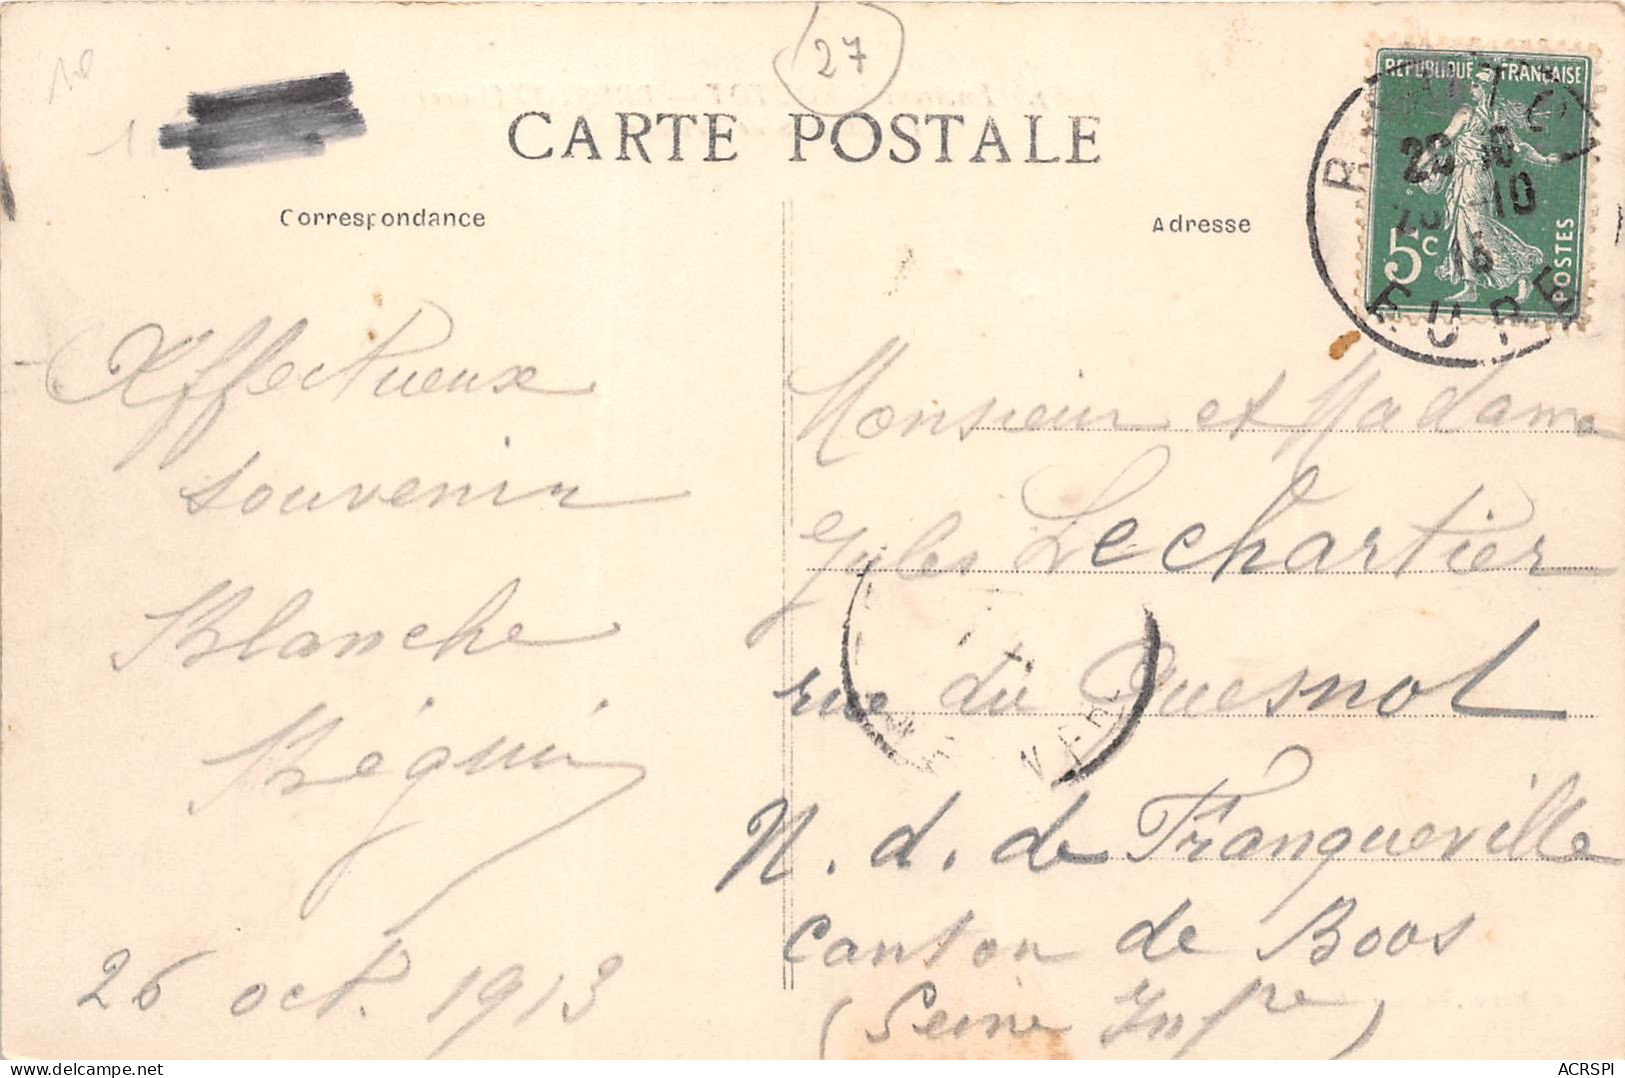 10
27
CARTE POSTALE
Correspondance
Adresse
REPUBLIQUE FRANÇAISE
5c
POSTES
20 10
-10
13
EURE
Affectueux
souvenir
Blanche
Béguin
26 oct. 1913
Monsieur et Madame
Jules Lechartier
rue du Quesnot
N. d. de Franqueville
Canton de Boos
(Seine Infre)
delcampe.net
ACRSPI